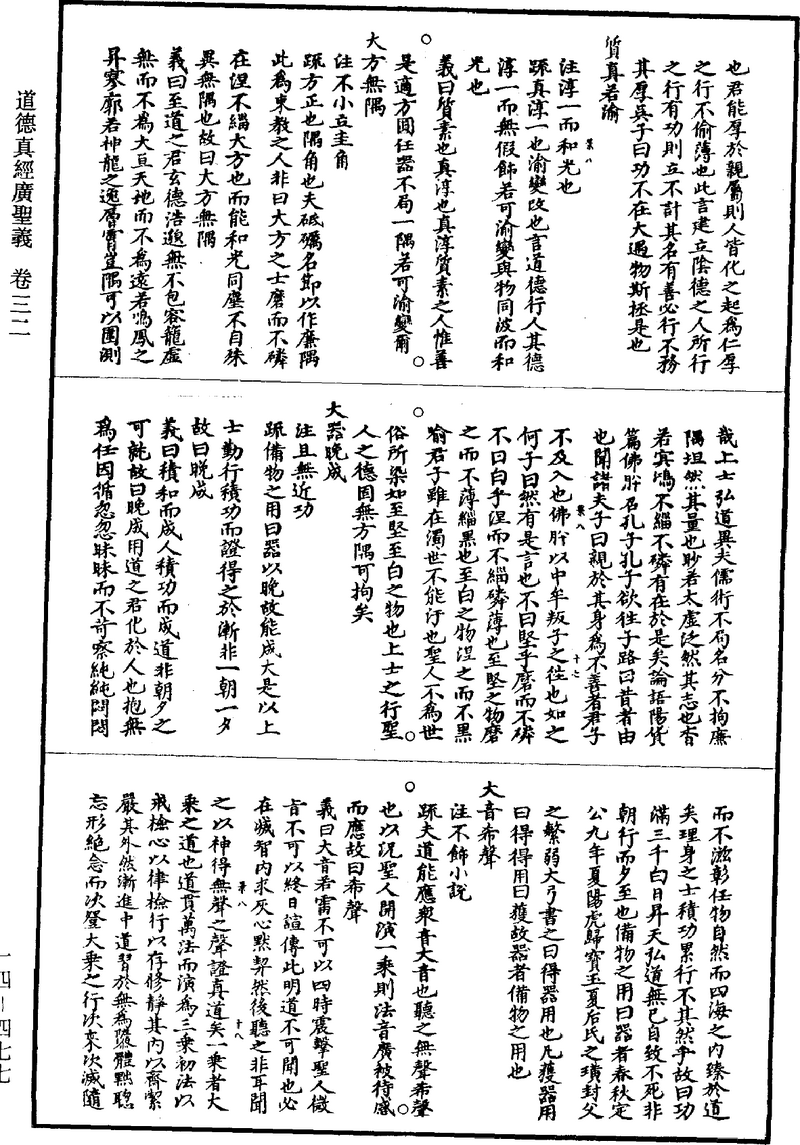 道德真經廣聖義 卷三二
也君能厚於親屬則人皆化之起為仁厚
之行不偷薄也此言建立陰德之人所行
之行有功則立不計其名有善必行不務
其厚吳子曰功不在大遇物斯拯是也
質真若渝
注淳一而和光也
疏真淳一也渝變改也言道德行人其德
淳一而無假飾若可渝變與物同波而和
光也
義曰質素也真淳也真淳質素之人惟善
是適方圓任器不局一隅若可渝變爾
大方無隅
注不小立圭角
疏方正也隅角也夫砥礪名節以作廉隅
此為束教之人非曰大方之士磨而不磷
在涅不緇大方也而能和光同塵不自殊
異無隅也故曰大方無隅
義曰至道之君玄德浩邈無不包容籠虛
無而不為大亘天地而不為遠若鳴鳳之
昇寥廓若神龍之逸層霄豈隅可以圍測
哉上士弘道異夫儒術不局名分不拘廉
隅坦然其量也眇若太虛泛然其志也杳
若賓鴻不緇不磷有在於是矣論語陽貨
篇佛肸召孔子孔子欲往子路曰昔者由
也聞諸夫子曰親於其身為不善者君子
不及入也佛肸以中牟叛子之往也如之
何子曰然有是言也不曰堅乎磨而不磷
不曰白乎涅而不緇磷薄也至堅之物磨
之而不薄緇黑也至白之物涅之而不黑
喻君子雖在濁世不能汙也聖人不為世
俗所染如至堅至白之物也上士之行聖
人之德固無方隅可拘矣
大器晚成
注且無近功
疏備物之用曰器以晚故能成大是以上
士勤行積功而證得之於漸非一朝一夕
故曰晚成
義曰積和而成人積功而成道非朝夕之
可就故曰晚成用道之君化於人也抱無
為任因循忽忽昧昧而不苛察純純悶悶
而不滋彰任物自然而四海之內臻於道
矣理身之士積功累行不其然乎故曰功
滿三千白日昇天弘道無已自致不死非
朝行而夕至也備物之用曰器者春秋定
公九年夏陽虎歸寶玉夏后氏之璜封父
之繁弱大弓書之曰得器用也凡獲器用
曰得得用曰獲故器者備物之用也
大音希聲
注不飾小說
疏夫道能應衆音大音也聽之無聲希聲
也以況聖人開演一乘則法音廣被待感
而應故曰希聲
義曰大音若雷不可以四時震擊聖人微
言不可以終日諠傳此明道不可聞也必
在滅智內求灰心默契然後聽之非耳聞
之以神得無聲之聲證真道矣一乘者大
乘之道也道貫萬法而演為三乘初法以
戒檢心以律檢行以存修靜其內以齋潔
嚴其外然漸進中道習於無為隳體黜聰
忘形絕念而次登大乘之行次來次滅隨
一四－四七七